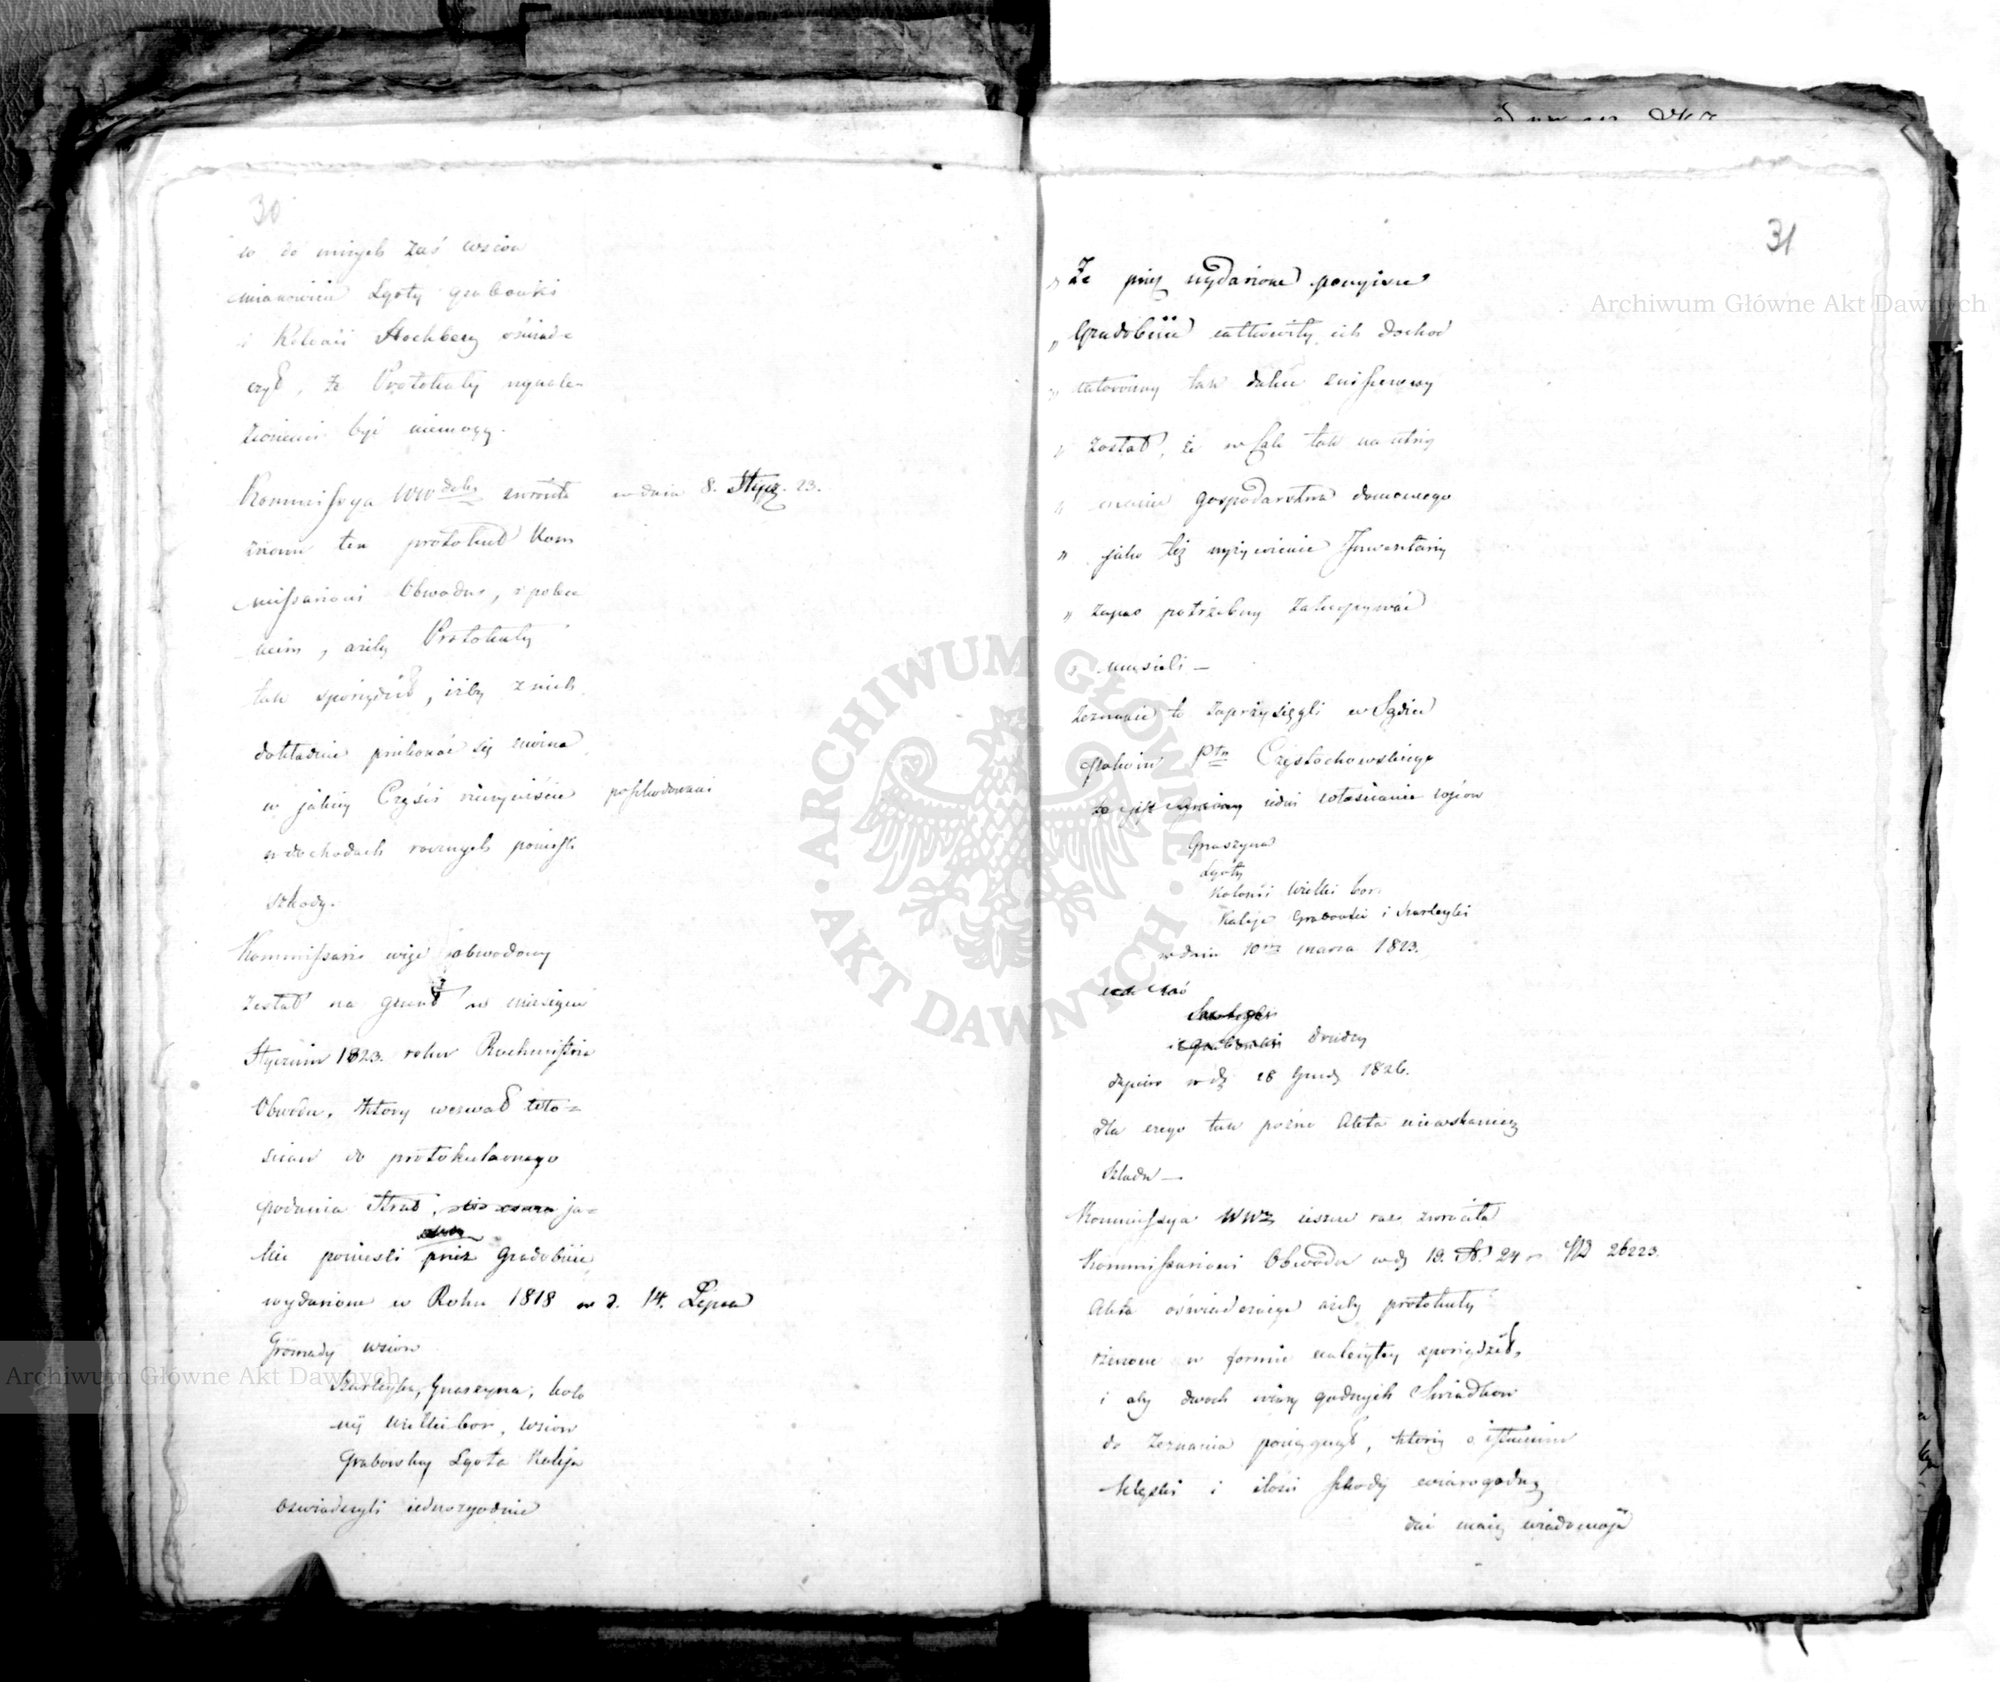 30
co do innych zaś wsiów
mianowicie Lgoty Grabówki
i Kolonii Hochberg oświad=
czył, że Protokuły wynale=
zionemi być niemogą.
Kommissya WWdzka zwróciła w dniu 8. Stycz. 23.
znowu ten protokuł Kom
missarzowi Obwodu, z pole
ceniem, ażeby Protokuły
tak sporządził, iżby z nich
dokładnie przekonać się można
w jakiey Części rzeczywiście poszkodowani
w dochodach rocznych ponieśli
szkody.
Kommissarz więc obwodowy
zesłał na grunt w miesiącu
Styczniu 1823. roku Rachmistrza
Obwodu, który wezwał wło=
ścian do protokularnego
podania Strat, ja=
kie ponieśli przez Gradobicie
wydarzone w Roku 1818 w d. 14. Lipca
Gromady wsiów
Szarleyka, Gnaszyna, kolo
nij Wielki bor, wsiów
Grabówkay Lgota Kaleja
Oswiadczyli iednozgodnie
31
„ Że przez wydarzone powyisze
„ Gradobicie całkowity ich dochod
„ całoroczny tak dalece zniszczony
„ został, że w cale tak na utrzy
„ manie gospodarstwa domowego
„ jako też wyżywienie Inwentarzy
„ zapas potrzebny zakupywać
„ musieli —
Zeznanie to zaprzysięgli w Sądzie
pokoiu Ptu Częstochowskiego
iedni włościanie wsiow
Gnaszyna
Lgoty
Kolonii Wielki bor
Kaleje Grabówki i Szarleyki
w dniu 10 marca 1823.
zaś
Szarleyki
i Grabówki drudzy
dopiero w dź 28 Grudź 1826.
dla czego tak pozno Akta niewskazuią
śladu —
Kommissya WWz iescze raz zwrociła
Kommissarzowi Obwodu w dź 19. St. 24 r N 26223.
Akta oświadczaiąc ażeby protokuły
rzeczone w formie należytey sporządził,
i aby dwoch wiary godnych Swiadkow
do Zeznania pociągnął, ktorzy o istnieniu
klęski i ilości szkody wiarogodną
dać maią wiadomość
Archiwum Główne Akt Dawnych
Archiwum Główne Akt Dawnych
ARCHIWUM GŁÓWNE AKT DAWNYCH